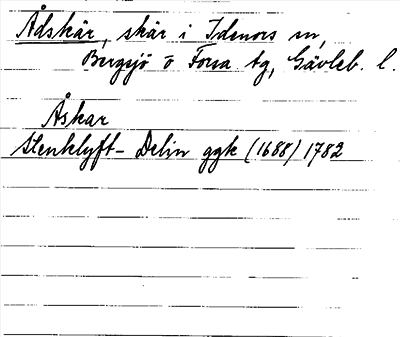 Ådskär, skär i Idenors sn,
Bergsjö o Forsa tg, Gävleb. l.
Åskar
Stenklyft- Delin ggk (1688) 1782